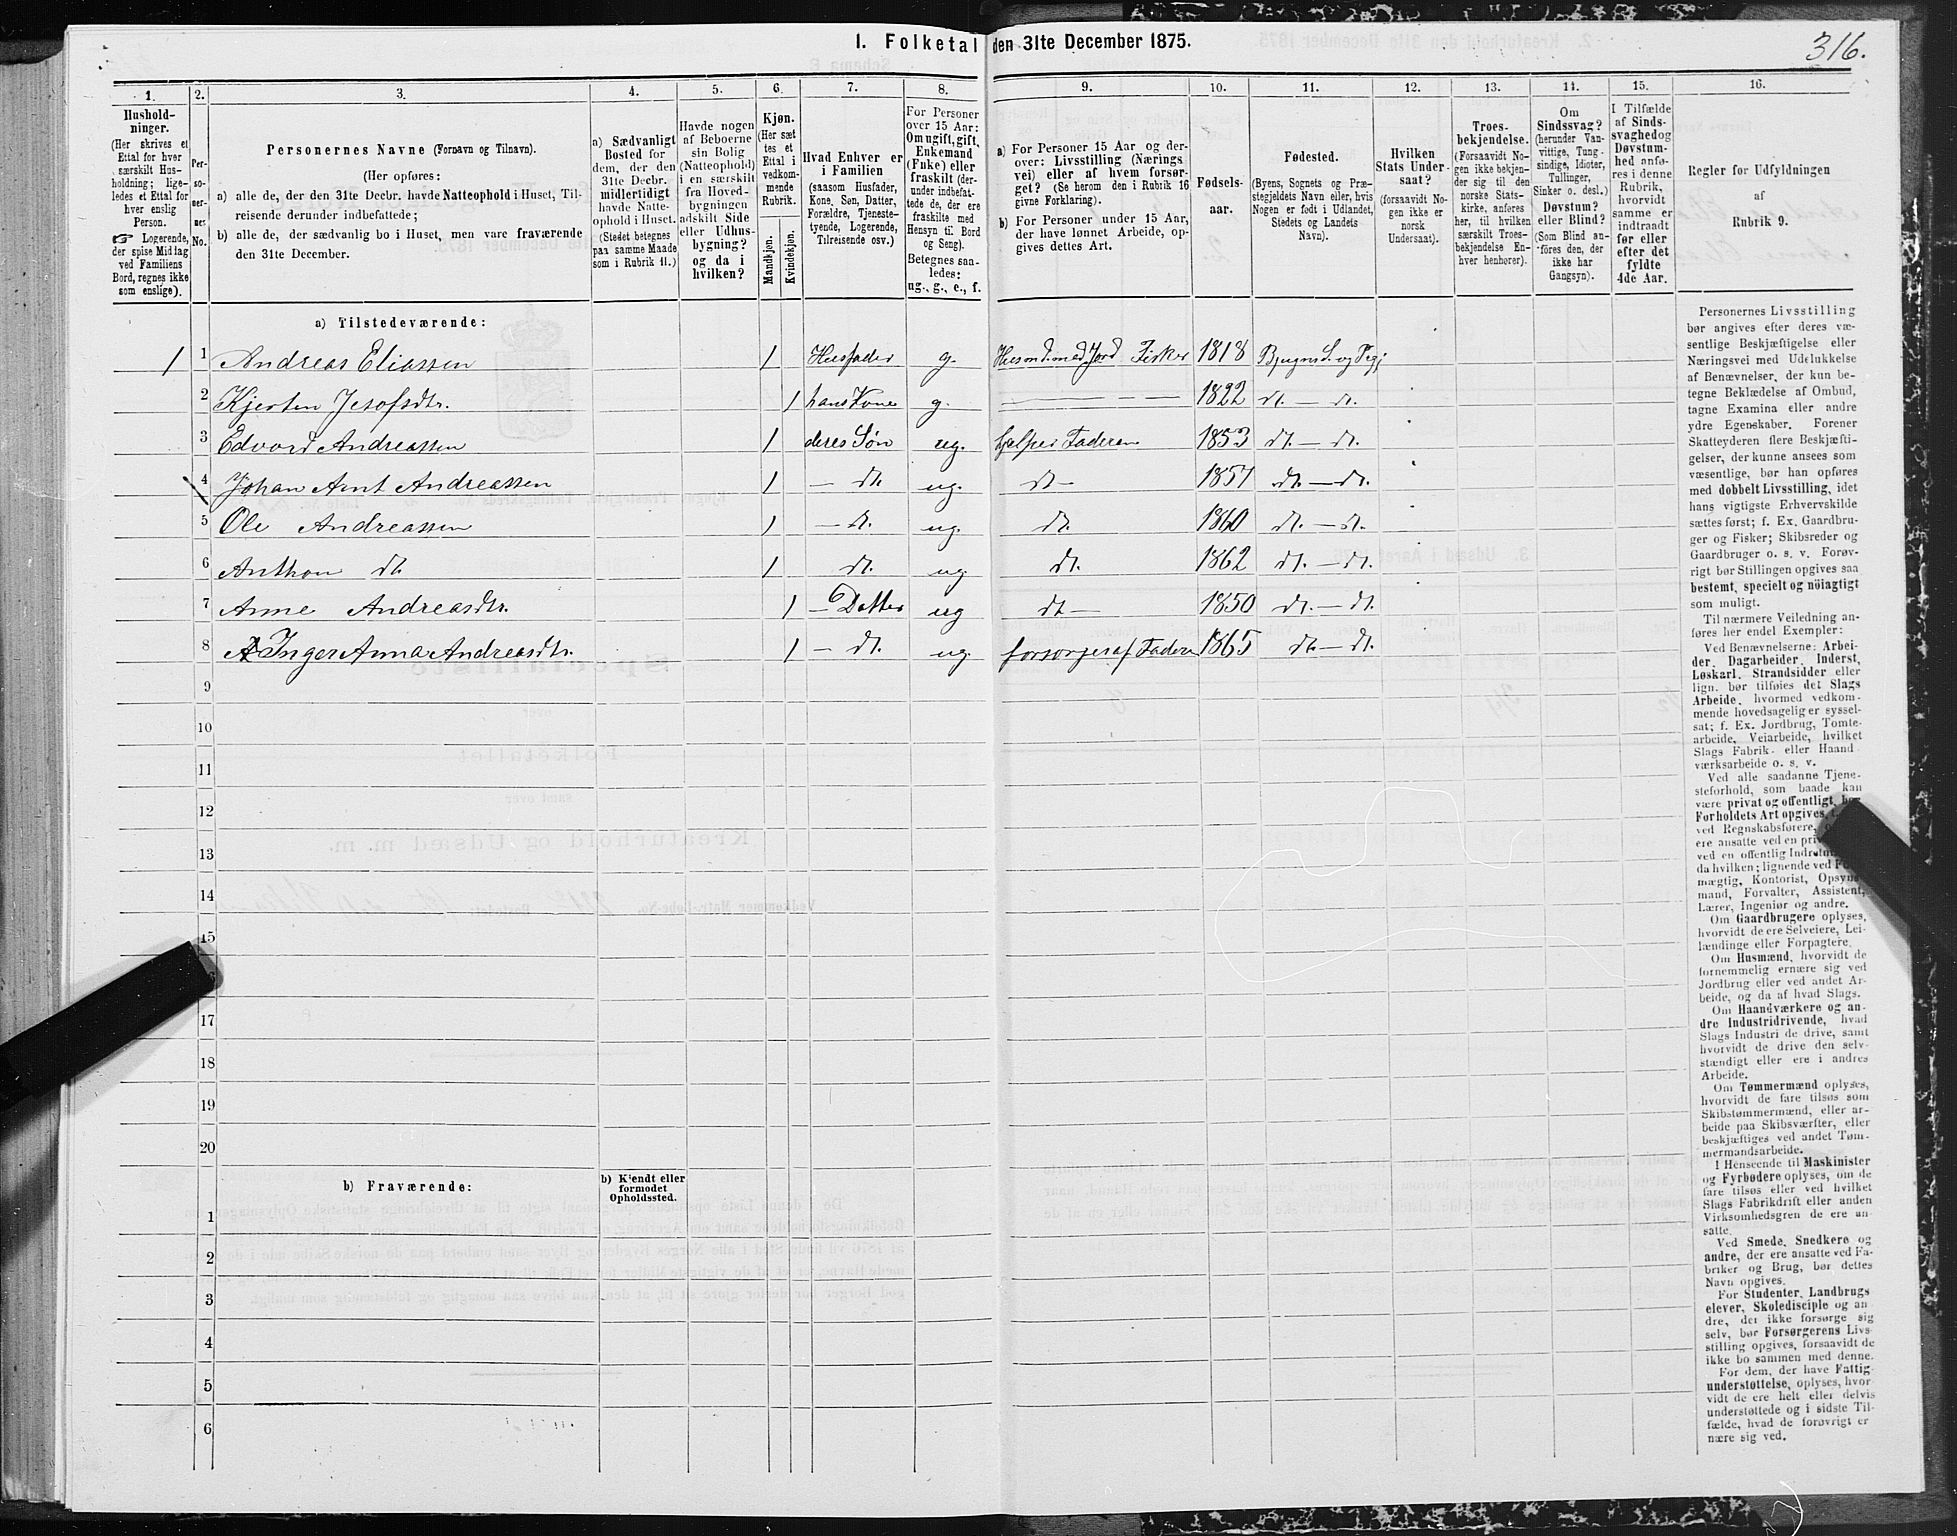 I. Folketal den 31te December 1875.
316.
1.
Hushold-
ninger.
(Her skrives et
Ettal for hver
særskilt Hus-
holdning; lige-
ledes et Ettal for
hver enslig
Person.
☞ Logerende,
der spise Middag
ved Familiens
Bord, regnes ikke
som enslige).
2.
Per-
so-
ner-
nes
No.
3.
Personernes Navne (Fornavn og Tilnavn).
(Her opføres:
a) alle de, der den 31te Decbr. havde Natteophold i Huset, Til-
reisende derunder indbefattede;
b) alle de, der sædvanlig bo i Huset, men vare fraværende
den 31te December.
4.
a) Sædvanligt
Bosted for
dem, der den
31te Decbr.
midlertidigt
havde Natte-
ophold i Huset.
(Stedet betegnes
paa samme Maade
som i Rubrik 11.)
5.
Havde nogen
af Beboerne
sin Bolig
(Natteophold)
i en særskilt
fra Hoved-
bygningen
adskilt Side
eller Udhus-
bygning?
og da i
hvilken?
6.
Kjøn.
(Her sæt-
tes et
Ettal i
vedkom-
mende
Rubrik.
Mandkjøn.
Kvindekjøn.
7.
Hvad Enhver er
i Familien
(saasom Husfader,
Kone, Søn, Datter,
Forældre, Tjeneste-
tyende, Logerende,
Tilreisende osv.)
8.
For Personer
over 15 Aar:
Om ugift, gift,
Enkemand
(Enke) eller
fraskilt (der-
under indbefat-
tede de, der ere
fraskilte med
Hensyn til Bord
og Seng).
Betegnes saa-
ledes:
ug., g., e., f.
9.
a) For Personer 15 Aar og der-
over: Livsstilling (Nærings-
vei) eller af hvem forsør-
get? (Se herom den i Rubrik 16
givne Forklaring).
b) For Personer under 15 Aar,
der have lønnet Arbeide, op-
gives dettes Art.
10.
Fødsels-
aar.
11.
Fødested.
(Byens, Sognets og Præ-
stegjeldets Navn eller, hvis
Nogen er født i Udlandet,
Stedets og Landets
Navn).
12.
Hvilken
Stats Under-
saat?
(forsaavidt No-
gen ikke er
norsk
Undersaat).
13.
Troes-
bekjendelse.
(Forsaavidt No-
gen ikke bekjen-
der sig til den
norske Stats-
kirke, anføres
her, til hvilken
særskilt Troes-
bekjendelse En-
hver henhører).
14.
Om
Sindssvag?
(herunder Van-
vittige, Tung-
sindige, Idioter,
Tullinger,
Sinker o. desl.)
Døvstum?
eller Blind?
(Som Blind an-
føres den, der
ikke har
Gangsyn).
15.
I Tilfælde
af Sinds-
svaghed og
Døvstum-
hed anfø-
res i denne
Rubrik,
hvorvidt
samme er
indtraadt
før eller
efter det
fyldte
4de Aar.
16.
Regler for Udfyldningen
af
Rubrik 9.
a) Tilstedeværende:
1 1 Andreas Eliassen 1 Husfader g. Husmd. med Jord Fisker 1818 Bjugns S. og Pegj
2 Kjersten Jesofsdtr. 1 hans Kone g. — — — 1822 dt. — dt.
3 Edvard Andreassen 1 deres Søn ug. hjelper Faderen 1853 dt. — dt.
4 Johan Arnt Andreassen 1 — dt. ug. dt — 1857 dt. — dt.
5 Ole Andreassen 1 — dt. ug. dt. 1860 dt. — dt.
6 Anthon dt. 1 dt. ug. dt. 1862 dt. — dt.
7 Anne Andreasdtr. 1 — Datter ug dt — 1850 dt. — dt.
8 Inger Anna Andreasdtr. 1 — dt. ug. forsørges af Faderen 1865 dt. — dt.
9
10
11
12
13
14
15
17
18
19
20
b) Fraværende:
b) Kjendt eller
formodet
Opholdssted.
1
2
3
4
5
6
Personernes Livsstilling
bør angives efter deres væ-
sentlige Beskjæftigelse eller
Næringsvei med Udelukkelse
af Benævnelser, der kun be-
tegne Beklædelse af Ombud,
tagne Examina eller andre
ydre Egenskaber. Forener
Skatteyderen flere Beskjæfti-
gelser, der kunne ansees som
væsentlige, bør han opføres
med dobbelt Livsstilling, idet
hans vigtigste Erhvervskilde
sættes først; f. Ex. Gaardbru-
ger og Fisker; Skibsreder og
Gaardbruger o. s. v. Forøv-
rigt bør Stillingen opgives saa
bestemt, specielt og nöiagtigt
som muligt.
Til nærmere Veiledning an-
føres her endel Exempler:
Ved Benævnelserne: Arbei-
der, Dagarbeider, Inderst,
Løskarl, Strandsidder eller
lign. bør tilføies det Slags
Arbeide, hvormed vedkom-
mende hovedsagelig er syssel-
sat; f. Ex. Jordbrug, Tomte-
arbeide, Veiarbeide, hvilket
Slags Fabrik- eller Haand-
værksarbeide o. s. v.
Ved alle saadanne Tjene-
steforhold, som baade kan
være privat og offentligt, bør
Forholdets Art opgives,
ved Regnskabsførere,
ere ansatte ved en
ved en offentlig
da hvilken; lignende ved
mægtig, Kontorist, Opsyns-
mand, Forvalter, Assistent,
Lærer, Ingeniør og andre.
Om Gaardbrugere oplyses,
hvorvidt de ere Selveiere, Lei-
lændinge eller Forpagtere.
Om Husmænd, hvorvidt de
fornemmelig ernære sig ved
Jordbrug eller ved andet Ar-
beide, og da af hvad Slags.
Om Haandværkere og an-
dre Industridrivende, hvad
Slags Industri de drive, samt
hvorvidt de drive den selv-
stændigt eller ere i andres
Arbeide.
Om Tømmermænd oplyses,
hvorvidt de fare tilsøs som
Skibstømmermænd, eller ar-
beide paa Skibsværfter, eller
beskjæftiges ved andet Tøm-
mermandsarbeide.
I Henseende til Maskinister
og Fyrbødere oplyses, om de
fare tilsøs eller ved hvilket
Slags Fabrikdrift eller anden
Virksomhedsgren de ere an-
satte.
Ved Smede, Snedkere og
andre, der ere ansatte ved Fa-
briker og Brug, bør dettes
Navn opgives.
For Studenter, Landbrugs-
elever, Skoledisciple og an-
dre, der ikke forsørge sig
selv, bør Forsørgerens Livs-
stilling opgives, forsaavidt de
ikke bo sammen med denne.
For dem, der have Fattig-
understøttelse, oplyses, hvor-
vidt de ere helt eller delvis
understøttede og i sidste Til-
fælde, hvad de forøvrigt er-
nære sig ved.